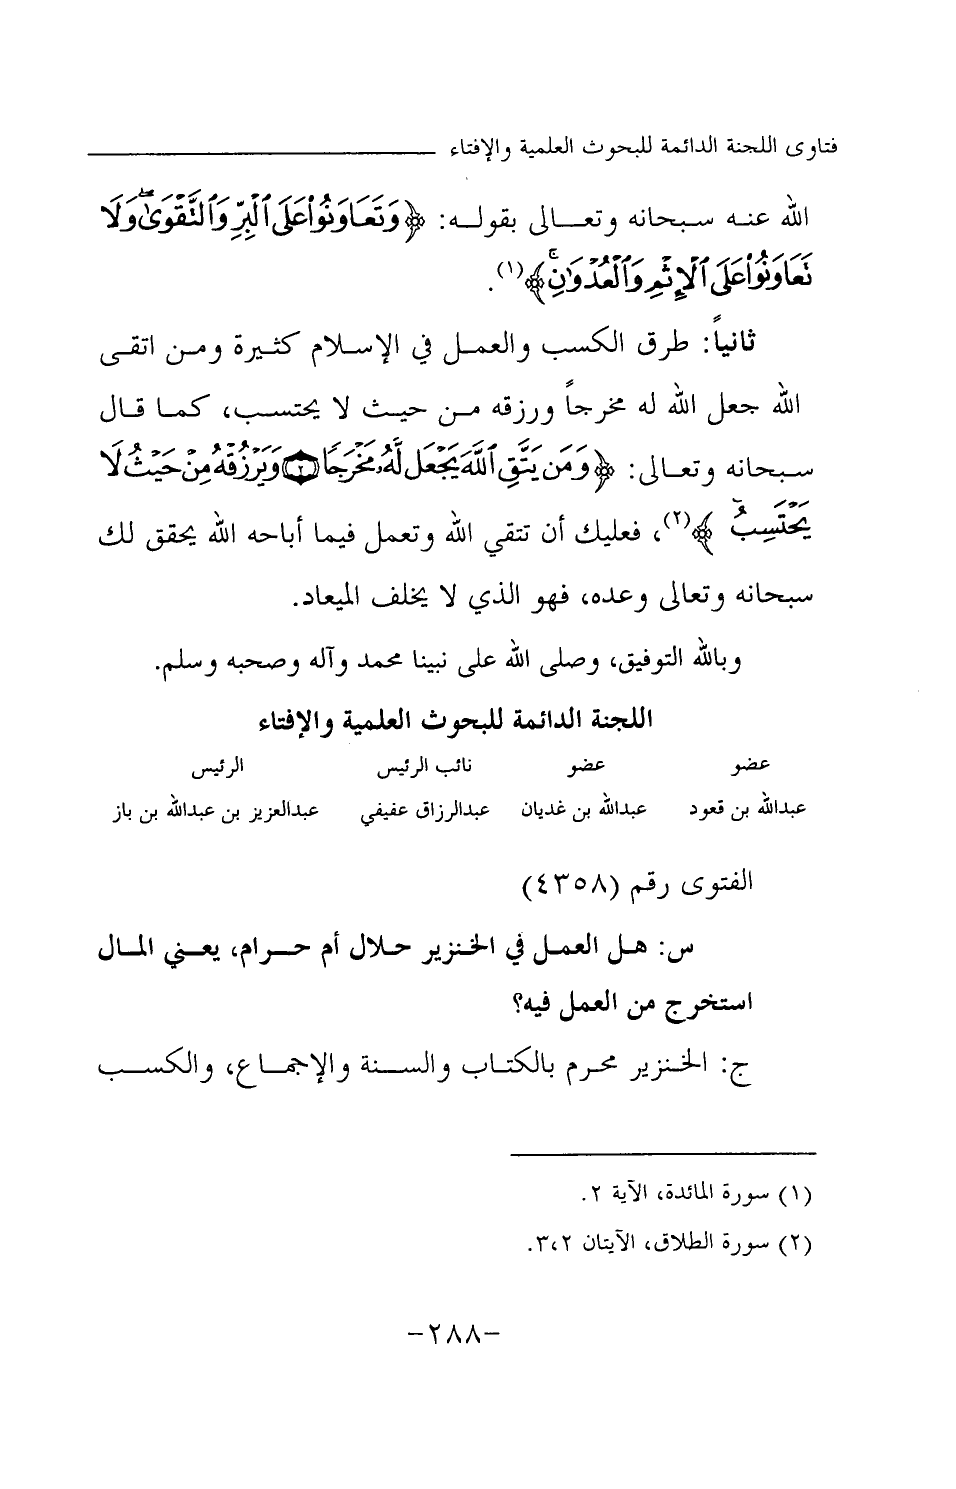 فتاوى اللجنة الدائمة للبحوث العلمية والإفتاء
الله عنه سبحانه وتعالى بقوله: ﴿وَتَعَاوَنُوا۟ عَلَى ٱلْبِرِّ وَٱلتَّقْوَىٰ ۖ وَلَا
تَعَاوَنُوا۟ عَلَى ٱلْإِثْمِ وَٱلْعُدْوَٰنِ ۚ﴾(١).
ثانياً: طرق الكسب والعمل في الإسلام كثيرة ومن اتقى
الله جعل الله له مخرجاً ورزقه من حيث لا يحتسب، كما قال
سبحانه وتعالى: ﴿وَمَن يَتَّقِ ٱللَّهَ يَجْعَل لَّهُۥ مَخْرَجًا ٢ وَيَرْزُقْهُ مِنْ حَيْثُ لَا
يَحْتَسِبُ ۚ﴾(٢)، فعليك أن تتقي الله وتعمل فيما أباحه الله يحقق لك
سبحانه وتعالى وعده، فهو الذي لا يخلف الميعاد.
وبالله التوفيق، وصلى الله على نبينا محمد وآله وصحبه وسلم.
اللجنة الدائمة للبحوث العلمية والإفتاء
عضو عضو نائب الرئيس الرئيس
عبدالله بن قعود عبدالله بن غديان عبدالرزاق عفيفي عبدالعزيز بن عبدالله بن باز
الفتوى رقم (٤٣٥٨)
س: هل العمل في الخنزير حلال أم حرام، يعني المال
استخرج من العمل فيه؟
ج: الخنزير محرم بالكتاب والسنة والإجماع، والكسب
(١) سورة المائدة، الآية ٢.
(٢) سورة الطلاق، الآيتان ٣،٢.
-٢٨٨-